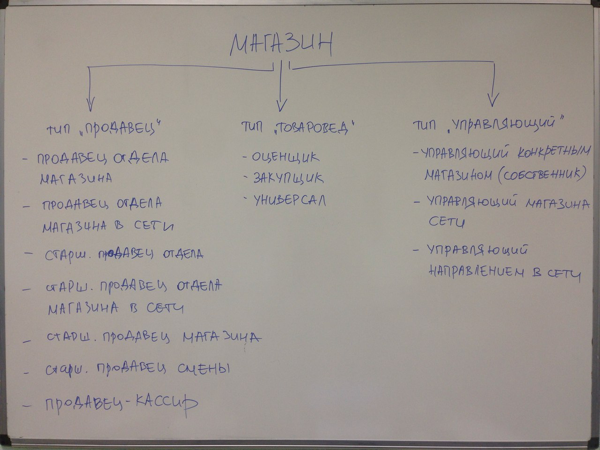 МАГАЗИН
ТИП „ПРОДАВЕЦ"
- ПРОДАВЕЦ ОТДЕЛА
МАГАЗИНА
- ПРОДАВЕЦ ОТДЕЛА
МАГАЗИНА В СЕТИ
- СТАРШ. ПРОДАВЕЦ ОТДЕЛА
- СТАРШ. ПРОДАВЕЦ ОТДЕЛА
МАГАЗИНА В СЕТИ
- СТАРШ. ПРОДАВЕЦ МАГАЗИНА
- СТАРШ. ПРОДАВЕЦ СМЕНЫ
- ПРОДАВЕЦ-КАССИР
ТИП „ТОВАРОВЕД"
- ОЦЕНЩИК
- ЗАКУПЩИК
- УНИВЕРСАЛ
ТИП „УПРАВЛЯЮЩИЙ"
- УПРАВЛЯЮЩИЙ КОНКРЕТНЫМ
МАГАЗИНОМ (СОБСТВЕННИК)
- УПРАВЛЯЮЩИЙ МАГАЗИНА
СЕТИ
- УПРАВЛЯЮЩИЙ
НАПРАВЛЕНИЕМ В СЕТИ